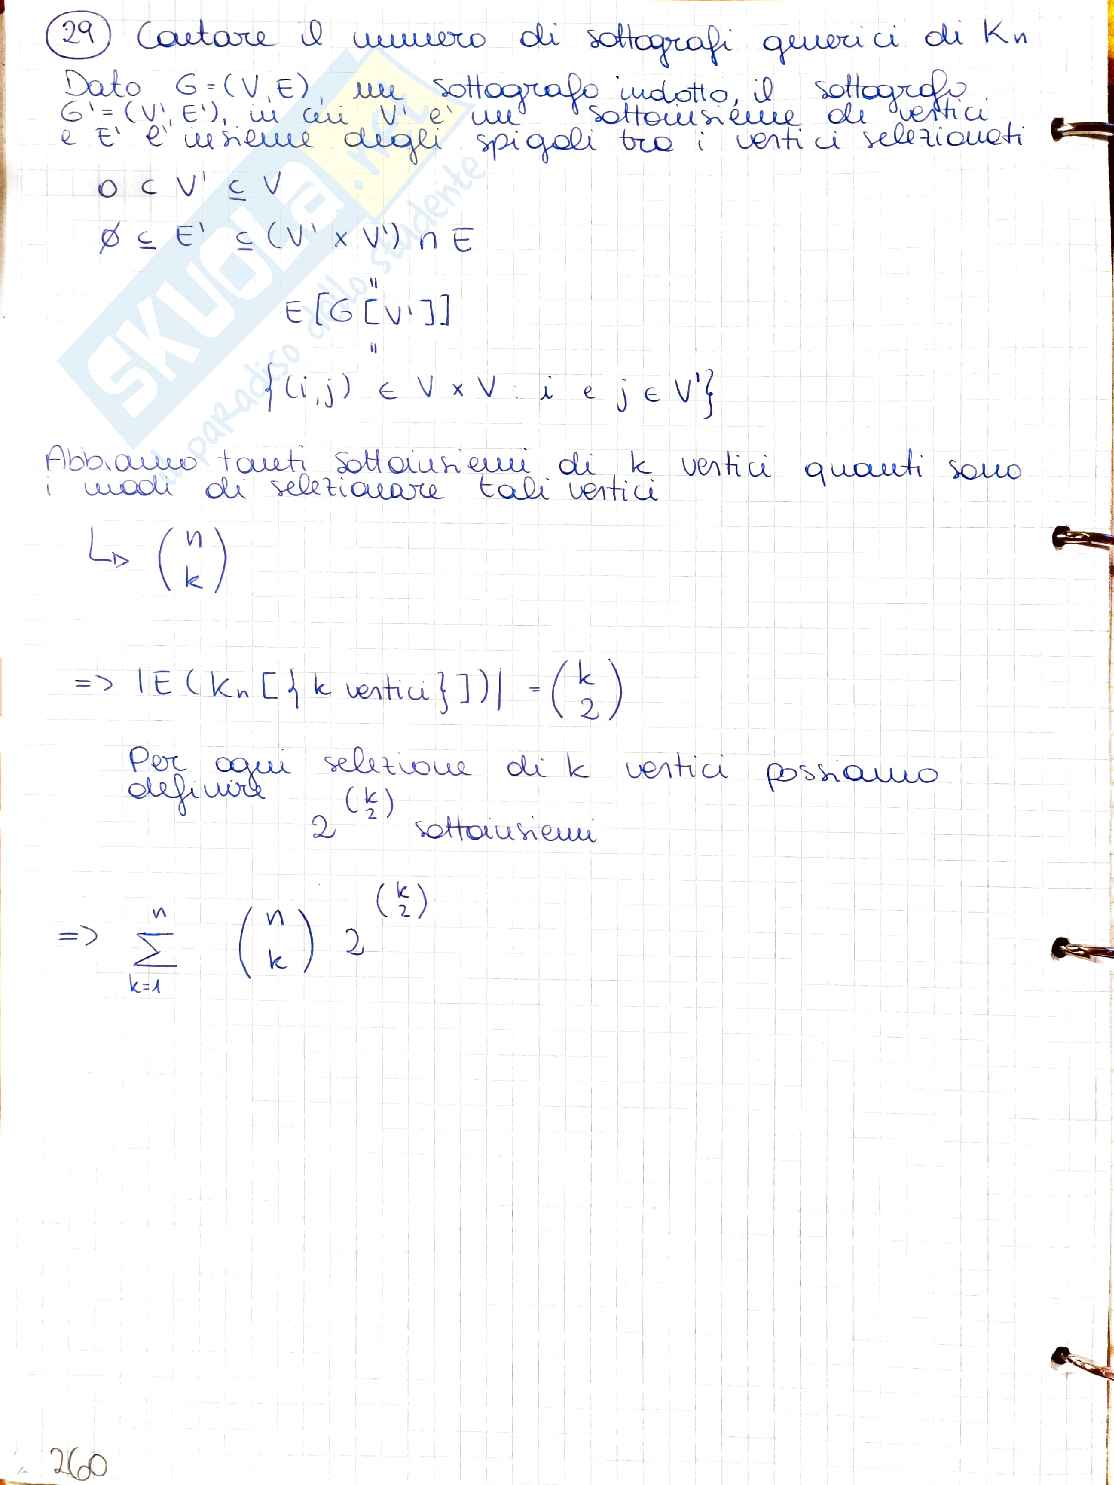 29 Contare il numero di sottografi generici di Kn
Dato G=(V,E), un sottografo indotto, il sottografo
G'=(V',E'), in cui V' e' un sottoinsieme di vertici
e E' e' insieme degli spigoli tra i vertici selezionati
0 ⊂ V' ⊆ V
∅ ⊆ E' ⊆ (V' × V') ∩ E
"
E[G[V']]
"
{(i,j) ∈ V × V : i e j ∈ V'}
Abbiamo tanti sottoinsiemi di k vertici quanti sono
i modi di selezionare tali vertici
↳ (n k)
=> |E(Kn[{k vertici}])| = (k 2)
Per ogni selezione di k vertici possiamo
definire
2^(k 2) sottoinsiemi
=> ∑ k=1 n (n k) 2^(k 2)
260
SKUOLA.net
il paradiso dello studente